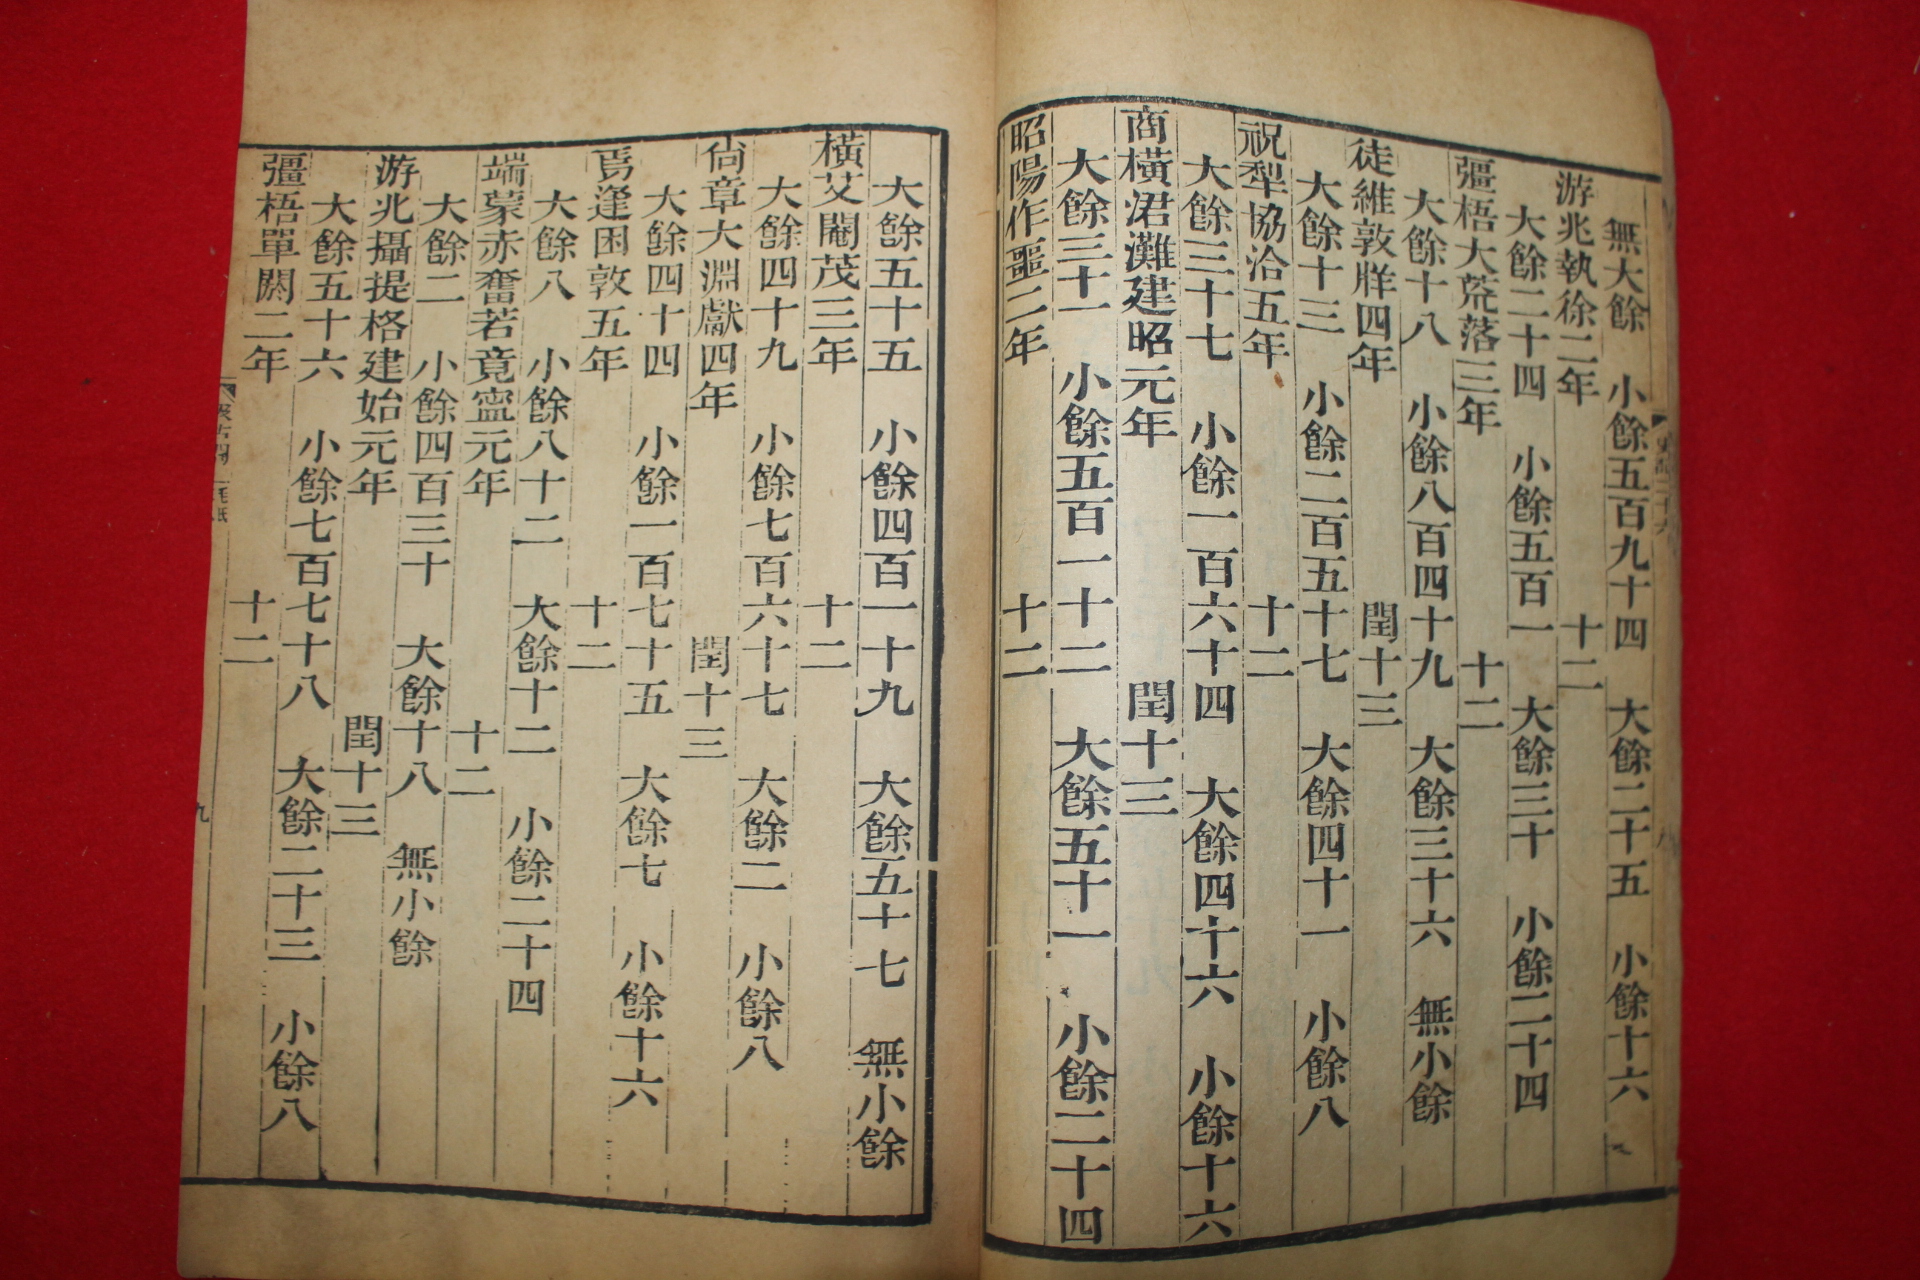 無大餘 小餘五百九十四 大餘二十五 小餘十六
游兆執徐二年 十二
大餘二十四 小餘五百一 大餘三十 小餘二十四
彊梧大荒落三年 十二
大餘十八 小餘八百四十九 大餘三十六 無小餘
徒維敦牂四年 閏十三
大餘十三 小餘二百五十七 大餘四十一 小餘八
祝犂協洽五年 十二
大餘三十七 小餘一百六十四 大餘四十六 小餘十六
商橫涒灘建昭元年 閏十三
大餘三十一 小餘五百一十二 大餘五十一 小餘二十四
昭陽作噩二年 十二
大餘五十五 小餘四百一十九 大餘五十七 無小餘
橫艾閹茂三年 十二
大餘四十九 小餘七百六十七 大餘二 小餘八
尚章大淵獻四年 閏十三
大餘四十四 小餘一百七十五 大餘七 小餘十六
焉逢困敦五年 十二
大餘八 小餘八十二 大餘十二 小餘二十四
端蒙赤奮若竟寧元年 十二
大餘二 小餘四百三十 大餘十八 無小餘
游兆攝提格建始元年 閏十三
大餘五十六 小餘七百七十八 大餘二十三 小餘八
彊梧單閼二年 十二
九